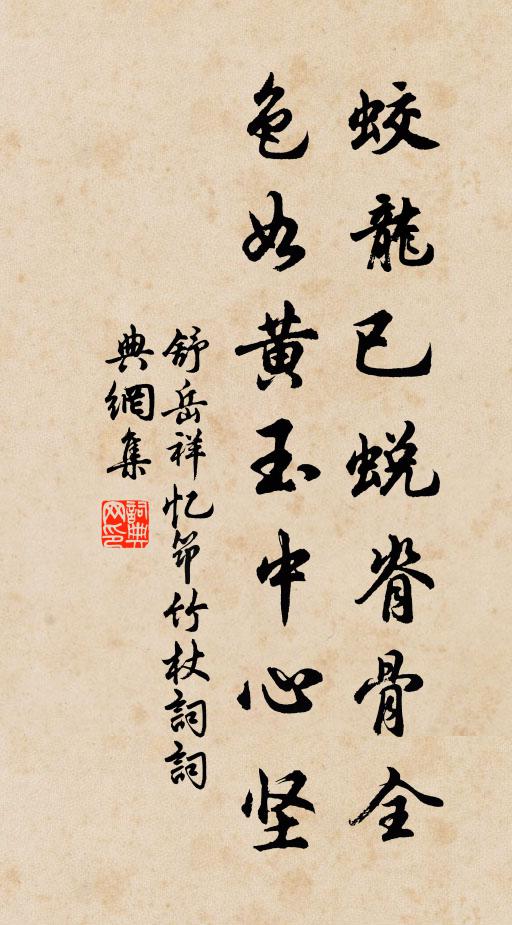 蛟龍已蜕脊骨全
色如黄玉中心坚
舒岳祥忆笻竹杖詞詞
典網集
詞典
网印